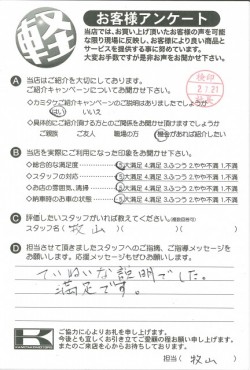 軽
お客様アンケート
当店では、お買い上げ頂いたお客様の声を可能
な限り現場に反映し、お客様により良い商品と
サービスを提供する事に努めています。
大変お手数ですが是非お声をお聞かせ下さい。
A 当店はご紹介を大切にしております。
ご紹介キャンペーンについてお聞かせ下さい。
検印
2.7.21
・カミタケご紹介キャンペーンのご説明はありましたでしょうか
はい いいえ
・具体的にご紹介頂ける方とのご関係をお聞かせ頂けますでしょうか
ご親族 ご友人 職場の方 機会があれば紹介したい
B 当店を実際にご利用になった印象をお聞かせ下さい。
・総合的な満足度 5大満足 4.満足 3.ふつう 2.やや不満 1.不満
・スタッフの対応 5大満足 4.満足 3.ふつう 2.やや不満 1.不満
・お店の雰囲気、清掃 5大満足 4.満足 3.ふつう 2.やや不満 1.不満
・納車時のお車の状態 5大満足 4.満足 3.ふつう 2.やや不満 1.不満
C 評価したいスタッフがいれば教えてください。(複数回答可)
スタッフ名 ( 牧山 ) ( ) ( )
D 担当させて頂きましたスタッフへのご指摘、ご指導メッセージを
お願いします。応援メッセージもぜひお願いします。
ていねいな説明でした。
満足です。
K
ご協力に心よりお礼を申し上げます。
今後とも宜しくお引き立てご愛顧の程お願い申し上げます。
またのご来店を心からお待ちしております。
担当 ( 牧山 )